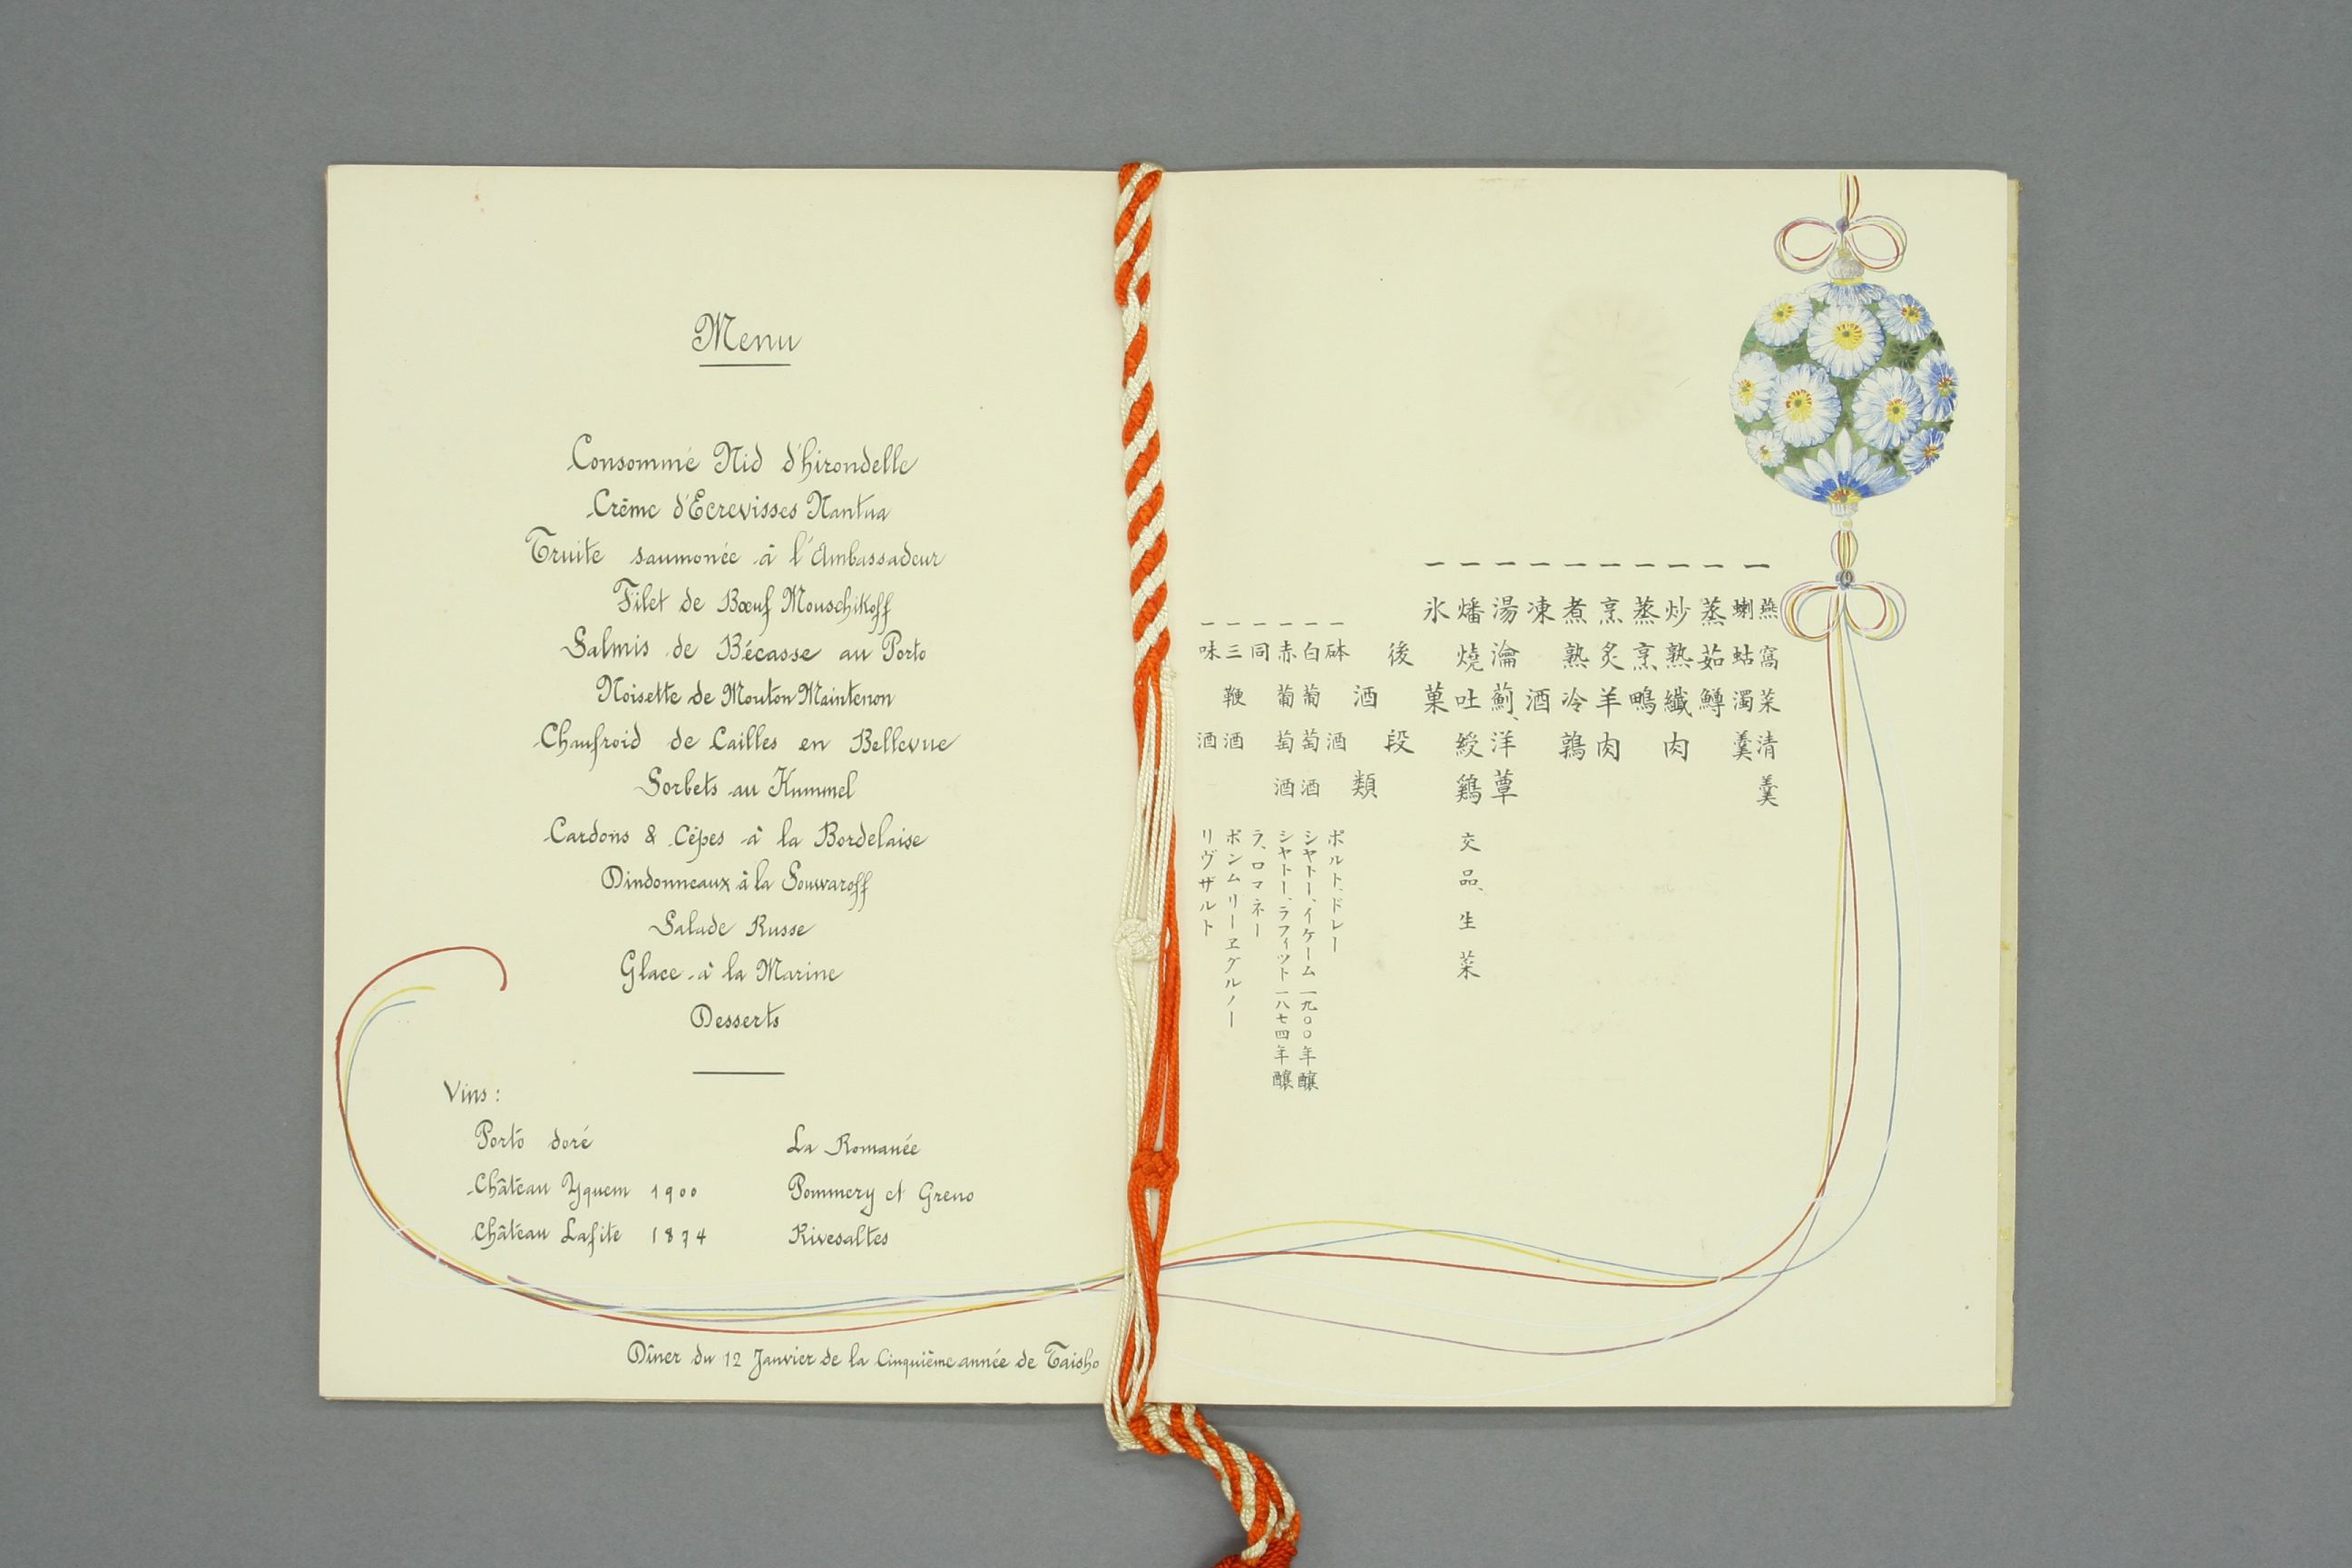 Menu
Consommé Nid d'hirondelle
Crême d'Ecrevisses Nantua
Truite saumonée à l'Ambassadeur
Filet de Bœuf Mouschikoff
Salmis de Bécasse au Porto
Noisette de Mouton Maintenon
Chaufroid de Cailles en Bellevue
Sorbets au Kummel
Cardons & Cêpes à la Bordelaise
Dindonneaux à la Souwaroff
Salade Russe
Glace à la Marine
Desserts
Vins :
Porto doré
Château Yquem 1900
Château Lafite 1874
La Romanée
Pommery et Greno
Rivesaltes
Dîner du 12 Janvier de la Cinquième année de Taisho
一 燕窩菜清羹
蝲蛄濁羹
一 蒸茹鱒
一 炒熟繊肉
一 蒸烹鴫
一 烹炙羊肉
一 煮熟冷鶉
一 凍酒
一 湯瀹薊、洋蕈
一 燔燒吐綬鷄 交品、生菜
一 氷菓
後段
酒類
一 砵酒 ポルト、ドレー
一 白葡萄酒 シヤトー、イケーム一九〇〇年釀
一 赤葡萄酒 シヤトー、ラフィット一八七四年釀
一 同 ラ、ロマネー
一 三鞭酒 ポンムリーヱグルノー
一 味酒 リヴザルト